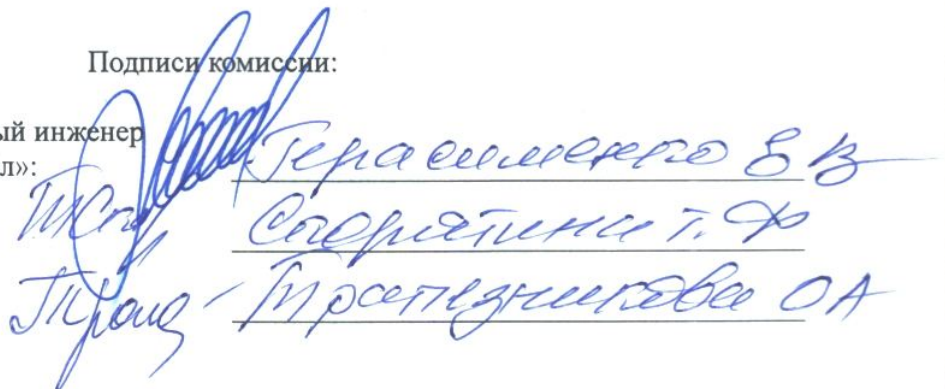 Подписи комиссии:
ый инженер
л»:
Герасименко Е В
Т. Ф
Трапезникова ОА